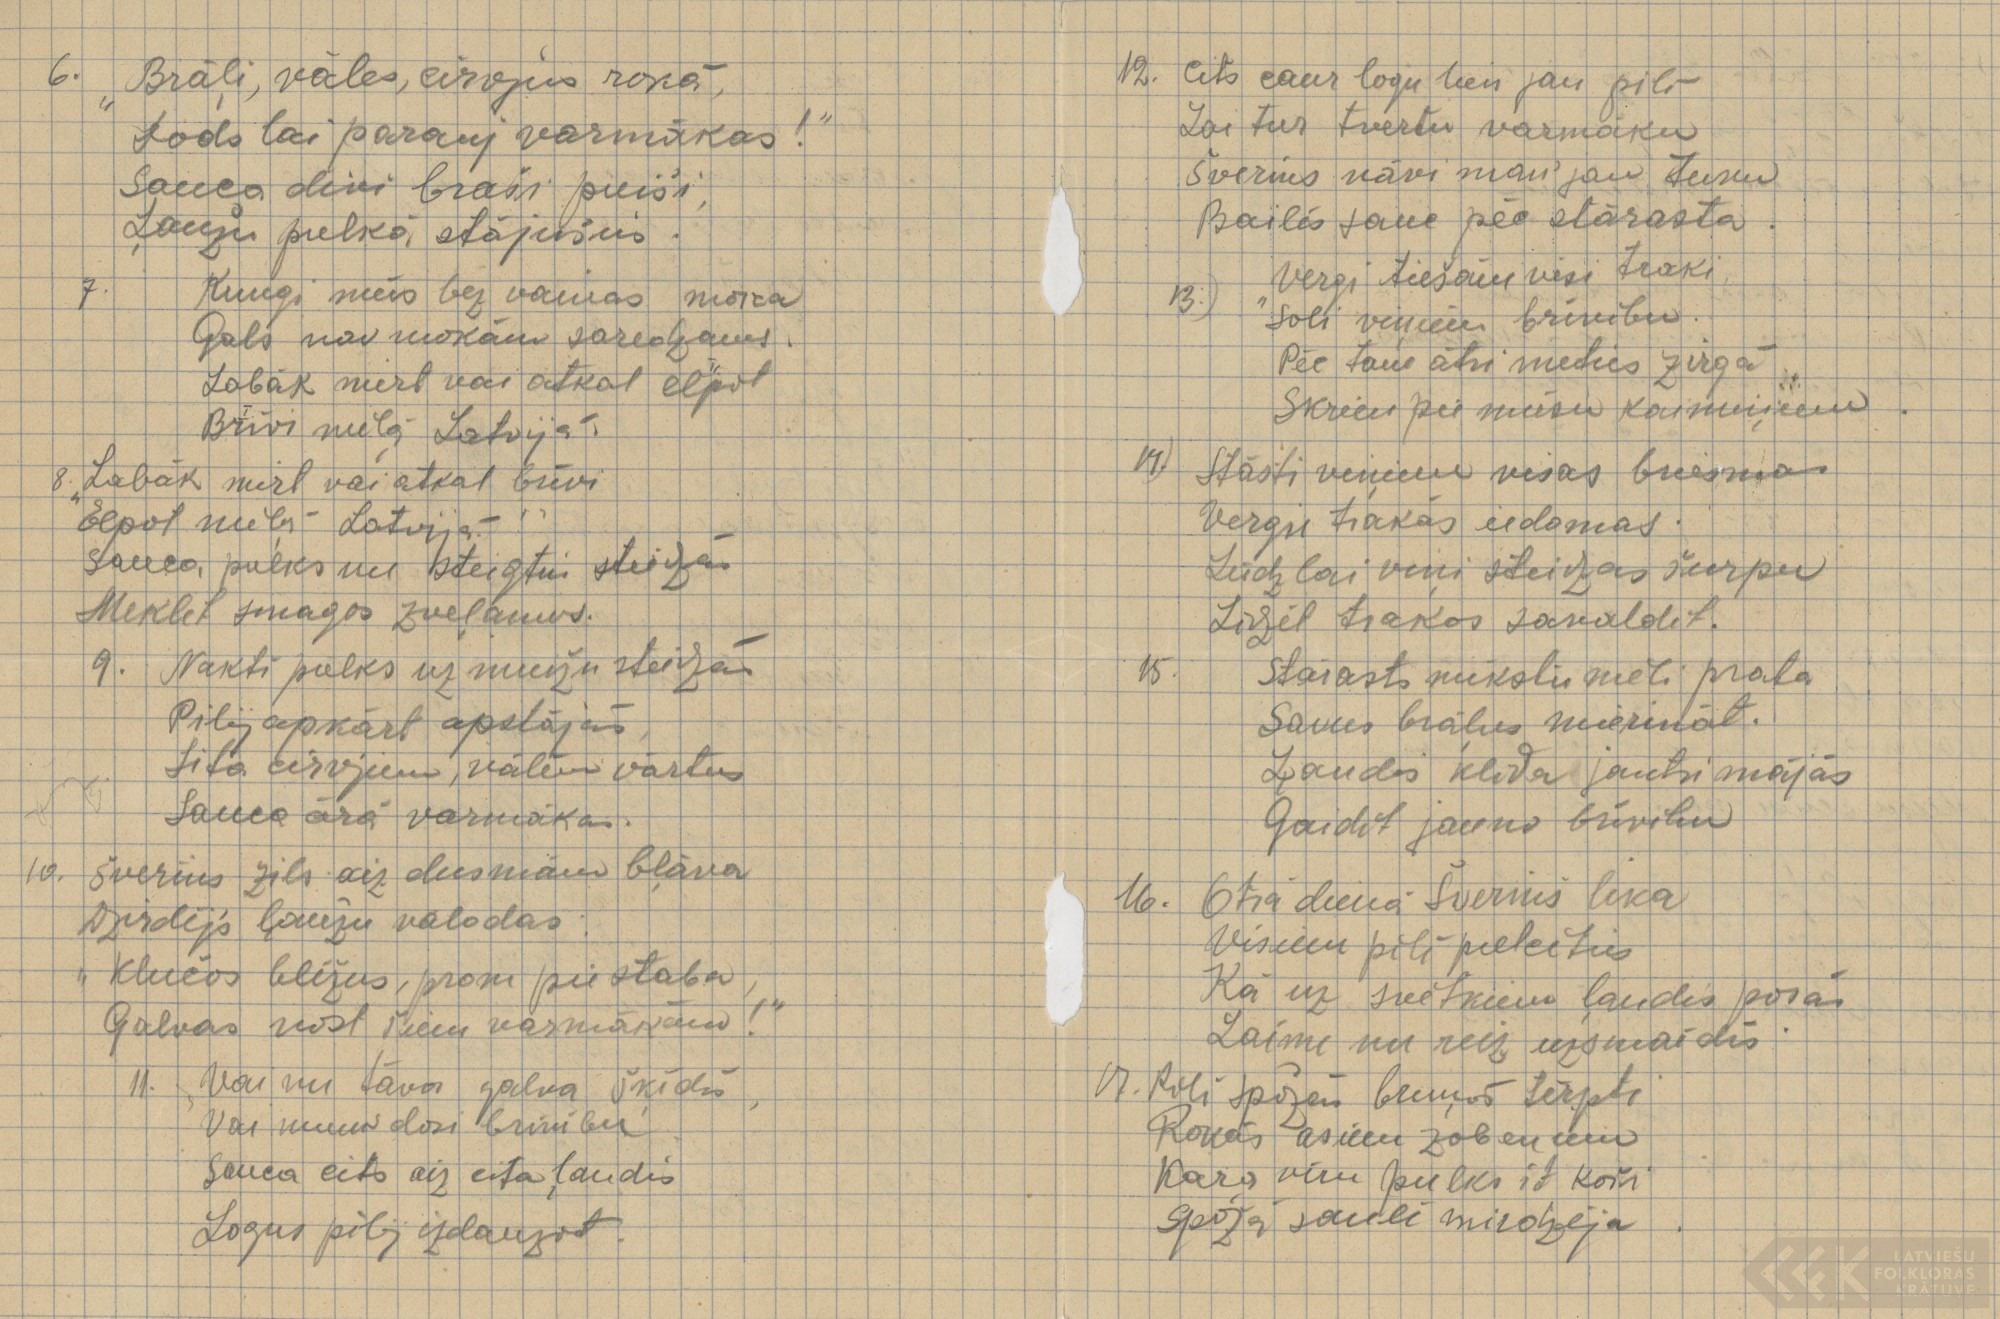 6. Brāļi, vāles, cirvjus rokā,
"Jods lai parauj varmākas!"
Sauca divi braši puiši,
Ļaužu pulkā stājušies.
7. Kungi mūs bez vainas moka
Gals nav mokām saredzams.
Labāk mirt vai atkal elpot
Brīvi mīļā Latvijā.
8. "Labāk mirt vai atkal brīvi
Elpot mīļā Latvijā"
Sauca pulks nu steigtin steidzās
Meklēt smagos zveļamos.
9. Naktī pulks uz muižu steidzās
Pilij apkārt apstājās,
Sita cirvjiem, vālēm vārtus
Sauca ārā varmākas.
10. Šverins zils aiz dusmām bļāva
Dzirdējs ļaužu valodas.
"Klučos blēžus, prom pie staba,
Galvas nost šiem varmākām!"
11. Vai nu tava galva šķīdīs,
Vai mums dosi brīvību
Sauca cits aiz cita ļaudis
Logus pilij izdauzot.
12. Cits caur logu lien jau pilī
Lai tur tvertu varmāku
Šverins nāvi man' jau tuvu
Bailēs sauc pēc stārasta.
13.) Vergi tiešām visi traki,
"Soli viņiem brīvību.
Pēc tam ātri meties zirgā
Skrien pie mūsu kaimiņiem.
14.) Stāsti viņiem visas briesmas
Vergu trakās iedomas.
Lūdz lai viņi steidzas šurpu
Līdzēt trakos savaldīt.
15. Starasts mīkstu mēli prata
Savus brāļus mierināt.
Ļaudis klīda jautri mājās
Gaidīt jauno brīvību
16. Otrā dienā Šverins lika
Visiem pilī pulcēties
Kā uz svētkiem ļaudis posās
Laime nu reiz uzsmaidīs.
17. Pilī spožās bruņās tērpti
Rokās asiem zobeniem
Kara vīru pulks it koši
Spožā saulē mirdzēja.
LATVIEŠU
FOLKLORAS
KRĀTUVE